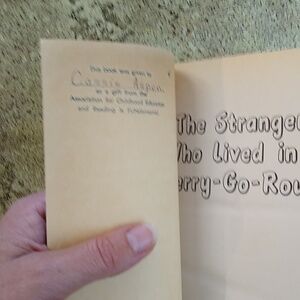 This book was given to
Carrie Aspen
as a gift from the
Association for Childhood Education
and Reading is Fundamental.
The Stranger
Who Lived in
erry-Go-Rou